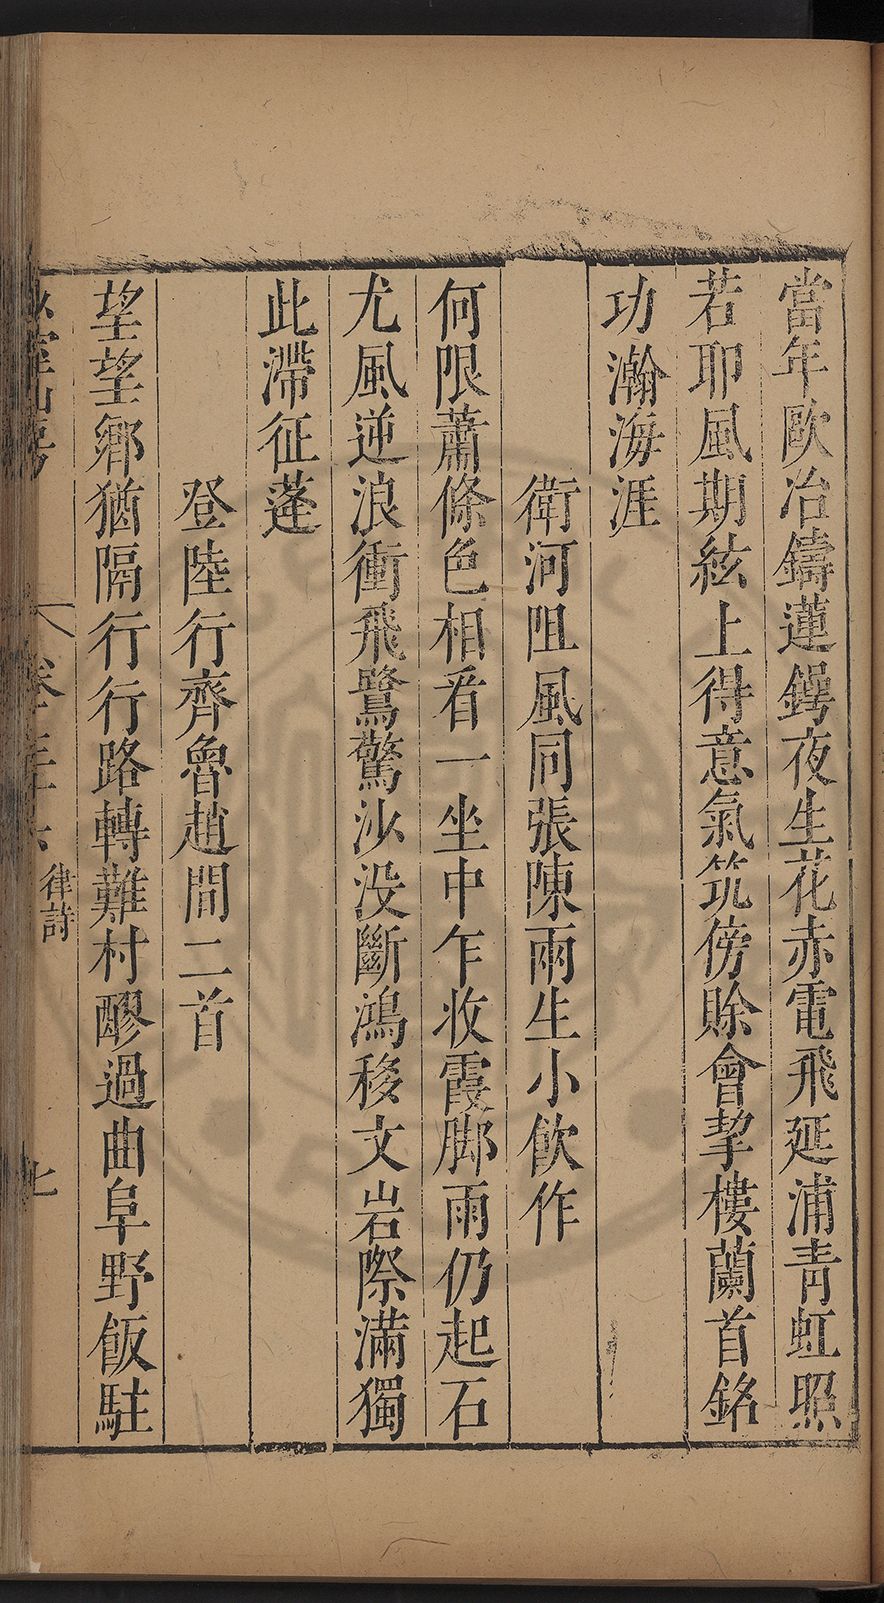 當年歐冶鑄蓮鍔夜生花赤電飛延浦青虹照
若耶風期絃上得意氣筑傍賖會挈樓蘭首銘
功瀚海涯
衛河阻風同張陳兩生小飲作
何限蕭條色相看一坐中乍收霞脚雨仍起石
尤風逆浪衝飛鷺驚沙没斷鴻移文岩際滿獨
此滯征蓬
登陸行齊魯趙間二首
望望鄉猶隔行行路轉難村醪過曲阜野飯駐
律詩
七